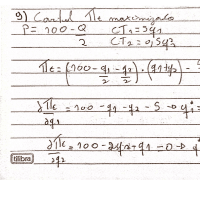 9) Conluf πc maximizado
P = 100 - Q/2 CT1 = 5q1
CT2 = 0,5q2²
πc = (100 - q1/2 - q2/2) . (q1 + q2) -
∂πc/∂q1 = 100 - q1 - q2 - 5 → q1 =
∂πc/∂q2 = 100 - 2q2 - q1 = 0 →
tilibra